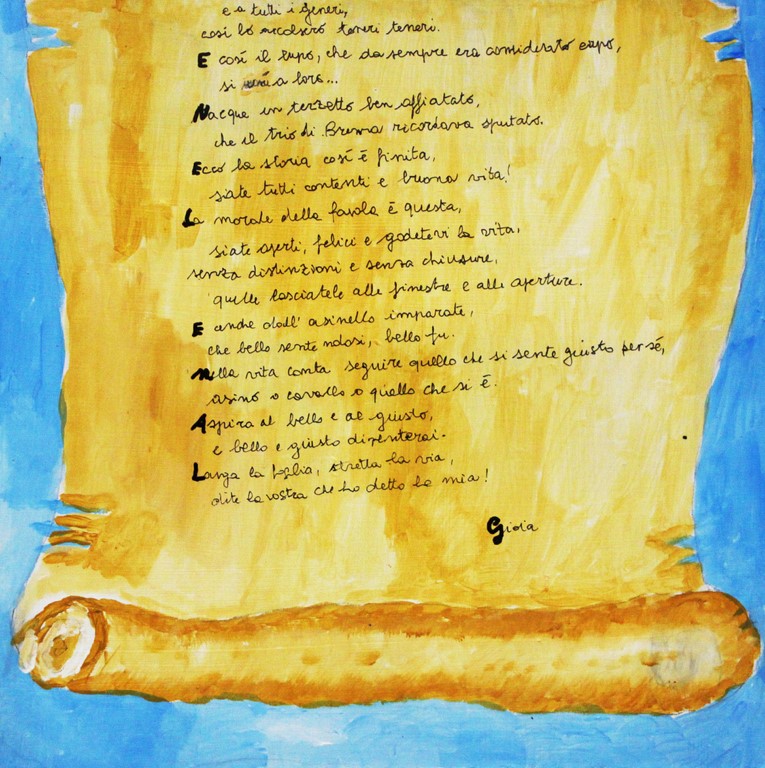 e a tutti i generi,
così lo accolsero teneri teneri.
E così il lupo, che da sempre era considerato cupo,
si unì a loro...
Nacque un terzetto ben affiatato,
che il trio di Brema ricordava sputato.
Ecco la storia così è finita,
siate tutti contenti e buona vita!
La morale della favola è questa,
siate aperti, felici e godetevi la vita,
senza distinzioni e senza chiusure,
quelle lasciatele alle finestre e alle aperture.
E anche dall' asinello imparate,
che bello sente ndosi, bello fu.
Nella vita conta seguire quello che si sente giusto per sé,
asino o cavallo o quello che si è.
Aspira al bello e al giusto,
e bello e giusto diventerai.
Larga la foglia, stretta la via,
dite la vostra che ho detto la mia!
Gioia